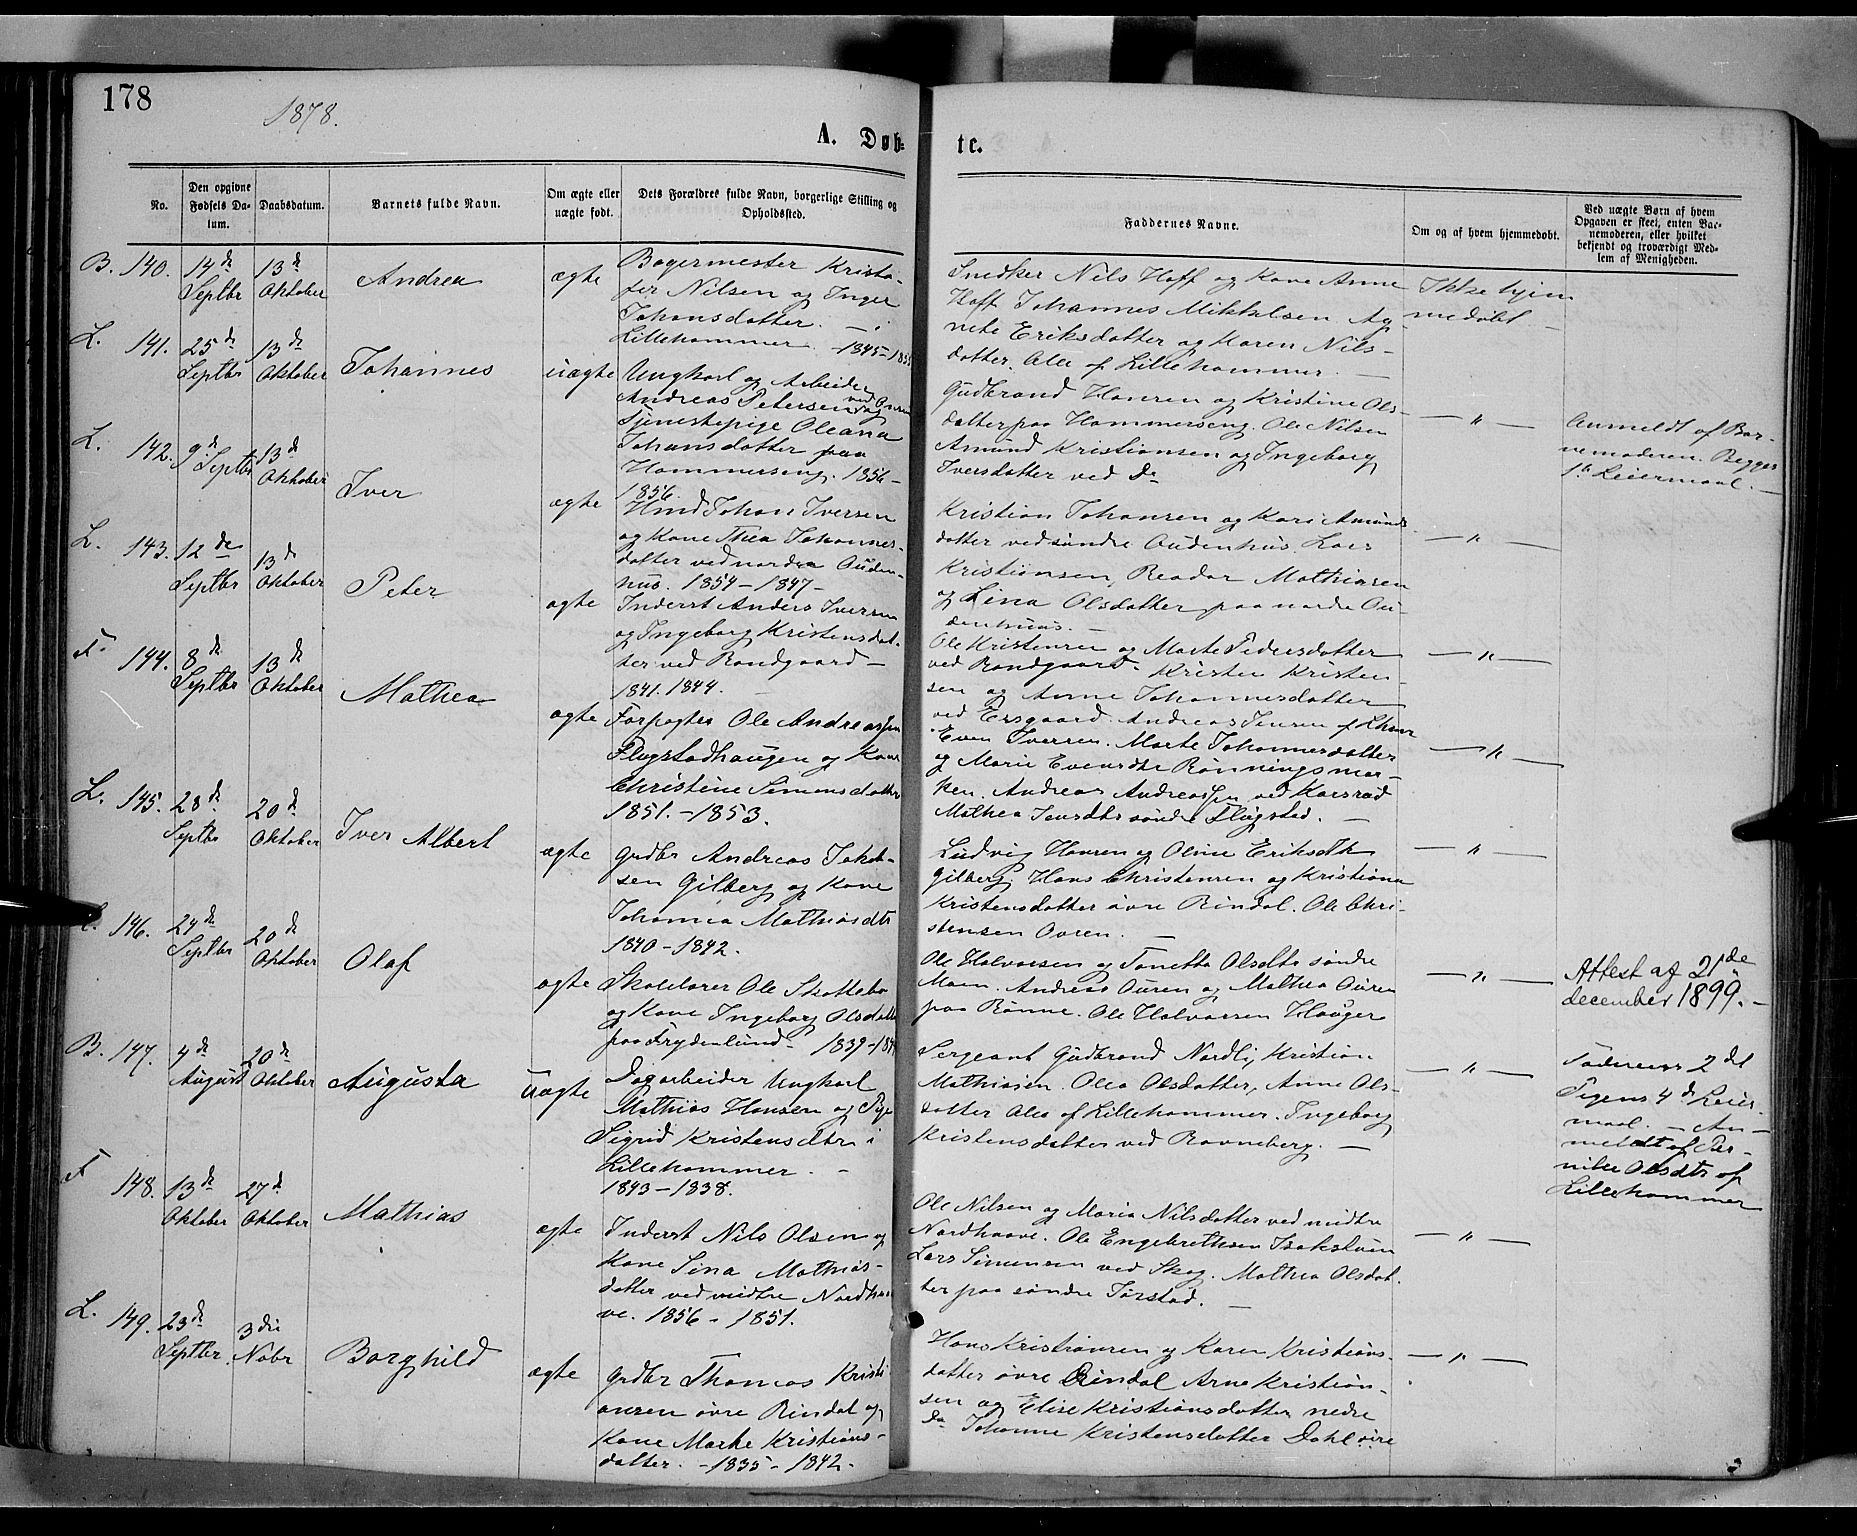 178
1878.
A. Døb-
te.
No.
Den opgivne
Fødsels Da-
tum.
Daabsdatum.
Barnets fulde Navn.
Om ægte eller
uægte født.
Dets Forældres fulde Navn, borgerlige Stilling og
Opholdssted.
Faddernes Navne.
Om og af hvem hjemmedøbt.
Ved uægte Børn af hvem
Opgaven er skeet, enten Bar-
nemoderen, eller hvilket
bekjendt og troværdigt Med-
lem af Menigheden.
B. 140. 14de Septbr 13de Oktober Andrea ægte
Bagermester Kristo-
fer Nilsen og Inger
Johansdatter. i
Lillehammer. -1845-
Snedker Nils Hoff og Kone Anne
Hoff Johannes Mikkelsen Ag-
nete Eriksdatter og Karen Nils-
datter. Alle af Lillehammer.
Ikke hjem
medøbt
L. 141. 25de Septbr 13de Oktober Johannes uægte
Ungkarl og Arbeider
Andreas Petersen og
Tjenestepige Oleana
Johansdatter paa
Hammerseng. 1856-
1856.
Gudbrand Hansen og Kristine Ols-
datter paa Hammerseng. Ole Nilsen
Amund Kristiansen og Ingeborg
Iversdatter ved Do
— " —
Anmeldt af Bar-
nemoderen. Begges
1ste Leiermaal.
L. 142. 9de Septbr 13de Oktober Iver ægte
Hmd Johan Iversen
og Kone Thea Johannes-
datter ved nordre Auden-
hus. 1854-1847-
Kristian Johansen og Kari Amunds
datter ved søndre Audenhus. Lars
Kristiansen, Reodor Mathiasen
og Lina Olsdatter paa nordre Au
denhuus.
— " —
L. 143. 12de Septbr 13de Oktober Peter ægte
Inderst Anders Iversen
og Ingeborg Kristensdat-
ter ved Randgaard-
1841. 1844.
Ole Kristensen og Marte Pedersdatter
ved Randgaard. Kristen Kristen-
sen og Anne Johannesdatter
ved Ersgaard. Andreas Jensen af
— " —
F. 144. 8de Septbr 13de Oktober Mathea ægte
Forpagter Ole Andreassen
Flugstadhaugen og Kone
Christine Simensdatter
1851.-1853.
Even Iversen. Marte Johannesdatter
og Marie Evensdtr Rønningsmar-
ken. Andreas Andreassen ved Karsrud
Mathea Jensdtr søndre Flugstad.
— " —
L. 145. 28de Septbr 20de Oktober Iver Albert ægte
Grdbr Andreas Johan-
sen Gilberg og Kone
Johanna Mathiasdtr
1840-1842.
Ludvig Hansen og Oline Eriksdtr
Gilberg. Hans Christensen og Kristiana
Kristensdatter øvre Rindal. Ole Chri-
stensen Ouren.
— " —
L. 146. 24de Septbr 20de Oktober Olaf ægte
Skolelærer Ole Skattebo
og Kone Ingeborg Olsdatter
paa Frydenlund- 1839-
Ole Halvorsen og Tonetta Olsdtr søndre
Moen. Andreas Ouren og Mathea Ouren
paa Rønne. Ole Halvorsen Hauger
— " —
Attest af 21de
december 1899.-
B. 147. 4de August 20de Oktober Augusta Uægte
Dagarbeider Ungkarl
Mathias Hansen og Pige
Sigrid Kristensdtr i
Lillehammer.
1843-1838.
Sergeant Gudbrand Nordli, Kristian
Mathiasen. Olea Olsdatter, Anne Ols-
datter Alle af Lillehammer. Ingeborg
Kristensdatter ved Ravneberg.
— " —
Faderens 2det
Pigens 4de Leier-
maal. - An-
meldt af Per-
nille Olsdtr af
Lillehammer
F 148. 13de Oktober 27de Oktober Mathias ægte
Inderst Nils Olsen og
Kone Lina Mathias-
datter ved midtre Nordhaa
ve. 1856-1851.
Ole Nilsen og Maria Nilsdatter ved midtre
Nordhaave. Ole Engebrethsen Isakstuen
Lars Simensen ved Skog. Mathea Olsdat-
ter paa søndre Jørstad.
— " —
L. 149. 23de Septbr. 3die Nobr Borghild ægte
Grdbr Thomas Kristi
ansen øvre Rindal og
Kone Marte Kristians-
datter. -1835-1842-
Hans Kristiansen og Karen Kristians-
datter øvre Rindal Arne Kristian-
sen og Elise Kristiansdatter nedre
Do Johanne Kristensdatter Dahl øvre
— " —